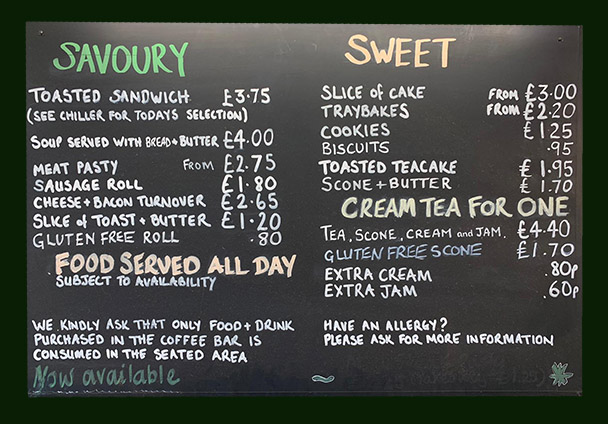 SAVOURY
TOASTED SANDWICH £3.75
(SEE CHILLER FOR TODAYS SELECTION)
SOUP SERVED WITH BREAD + BUTTER £4.00
MEAT PASTY FROM £2.75
SAUSAGE ROLL £1.80
CHEESE + BACON TURNOVER £2.65
SLICE of TOAST + BUTTER £1.20
GLUTEN FREE ROLL .80
FOOD SERVED ALL DAY
SUBJECT TO AVAILABILITY
WE KINDLY ASK THAT ONLY FOOD + DRINK
PURCHASED IN THE COFFEE BAR IS
CONSUMED IN THE SEATED AREA
Now available
SWEET
SLICE OF CAKE FROM £3.00
TRAYBAKES FROM £2.20
COOKIES £1.25
BISCUITS .95
TOASTED TEACAKE £1.95
SCONE + BUTTER £1.70
CREAM TEA FOR ONE
TEA, SCONE, CREAM and JAM. £4.40
GLUTEN FREE SCONE £1.70
EXTRA CREAM .80p
EXTRA JAM .60p
HAVE AN ALLERGY?
PLEASE ASK FOR MORE INFORMATION